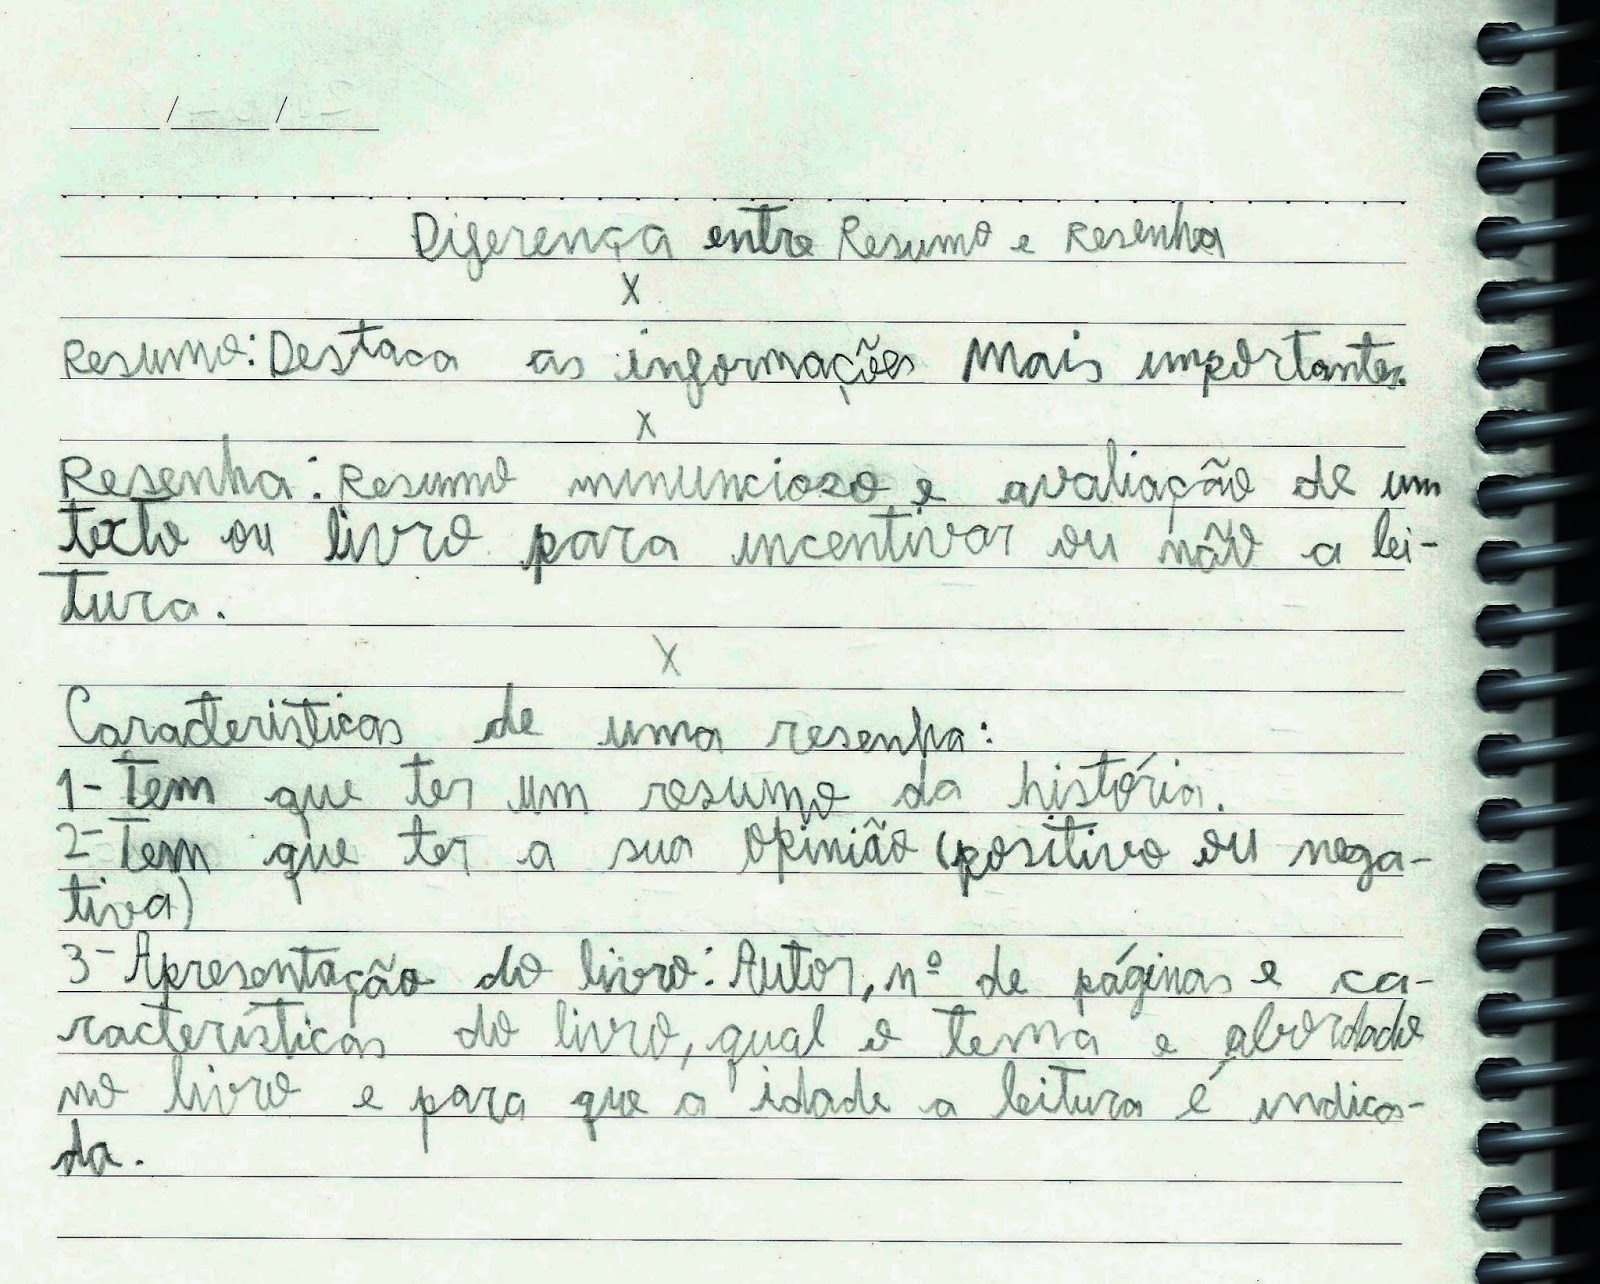 Diferença entre Resumo e Resenha
X
Resumo: Destaca as informações Mais importantes.
X
Resenha: Resumo minuncioso e avaliação de um
texto ou livro para incentivar ou não a lei-
tura.
X
Características de uma resenha:
1- Tem que ter um resumo da história.
2- Tem que ter a sua opinião (positivo ou nega-
tiva)
3- Apresentação do livro: Autor, nº de páginas e ca-
racterísticas do livro, qual o tema e abordado
no livro e para que a idade a leitura é indica-
da.